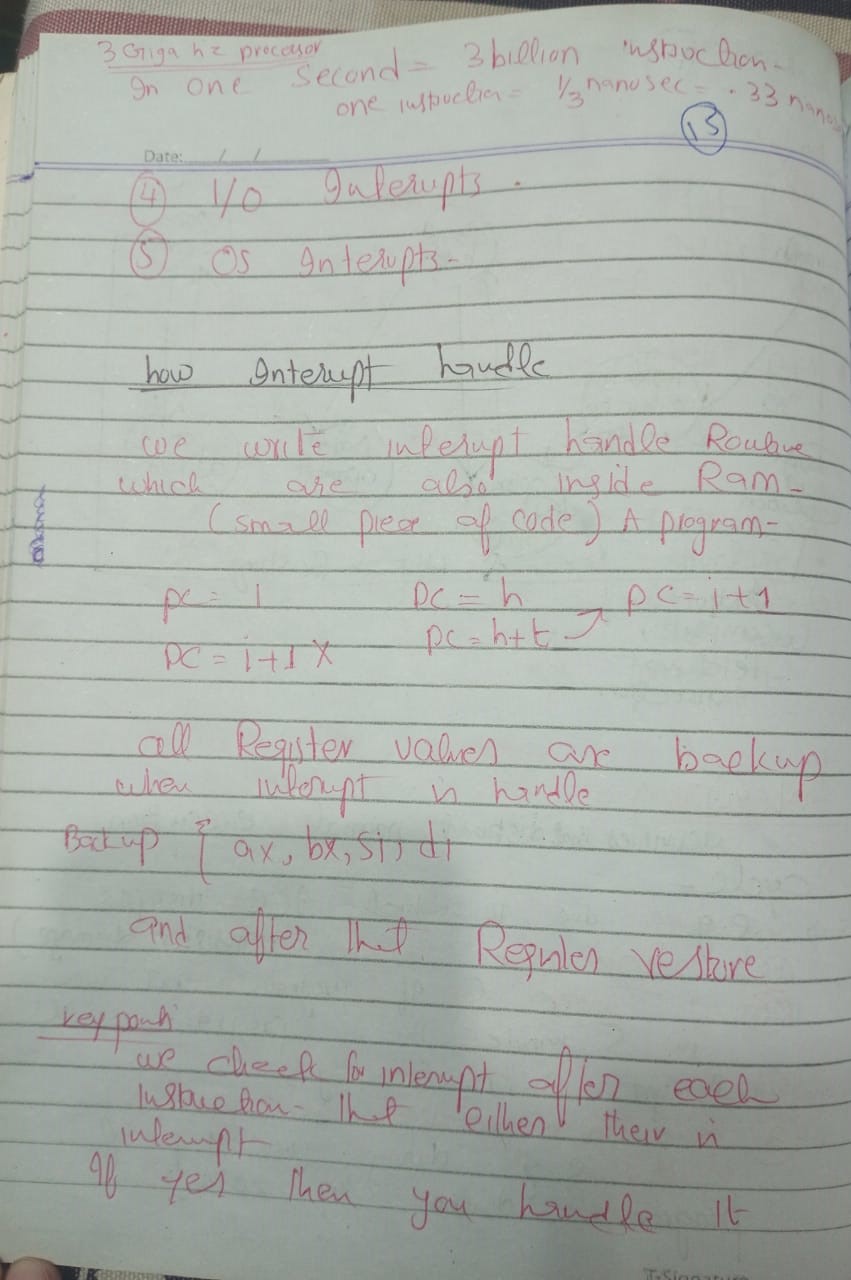 3 Giga hz processor
In one second = 3 billion instruction-
one instruction = 1/3 nanosec = .33 nanos
13
Date: / /
④ I/O Interupts.
⑤ OS Interupts-
how Interupt handle
we write interupt handle Routine
which are also inside Ram-
(small piece of code) A program-
pc = i PC = h PC = i+1
PC = i+1 X pc = h+t
all Register values are backup
when interupt is handle
Backup { ax, bx, si, di
and after that Register restore
key point
we check for interupt after each
Instruction- that either their is
interupt
If yes then you handle it